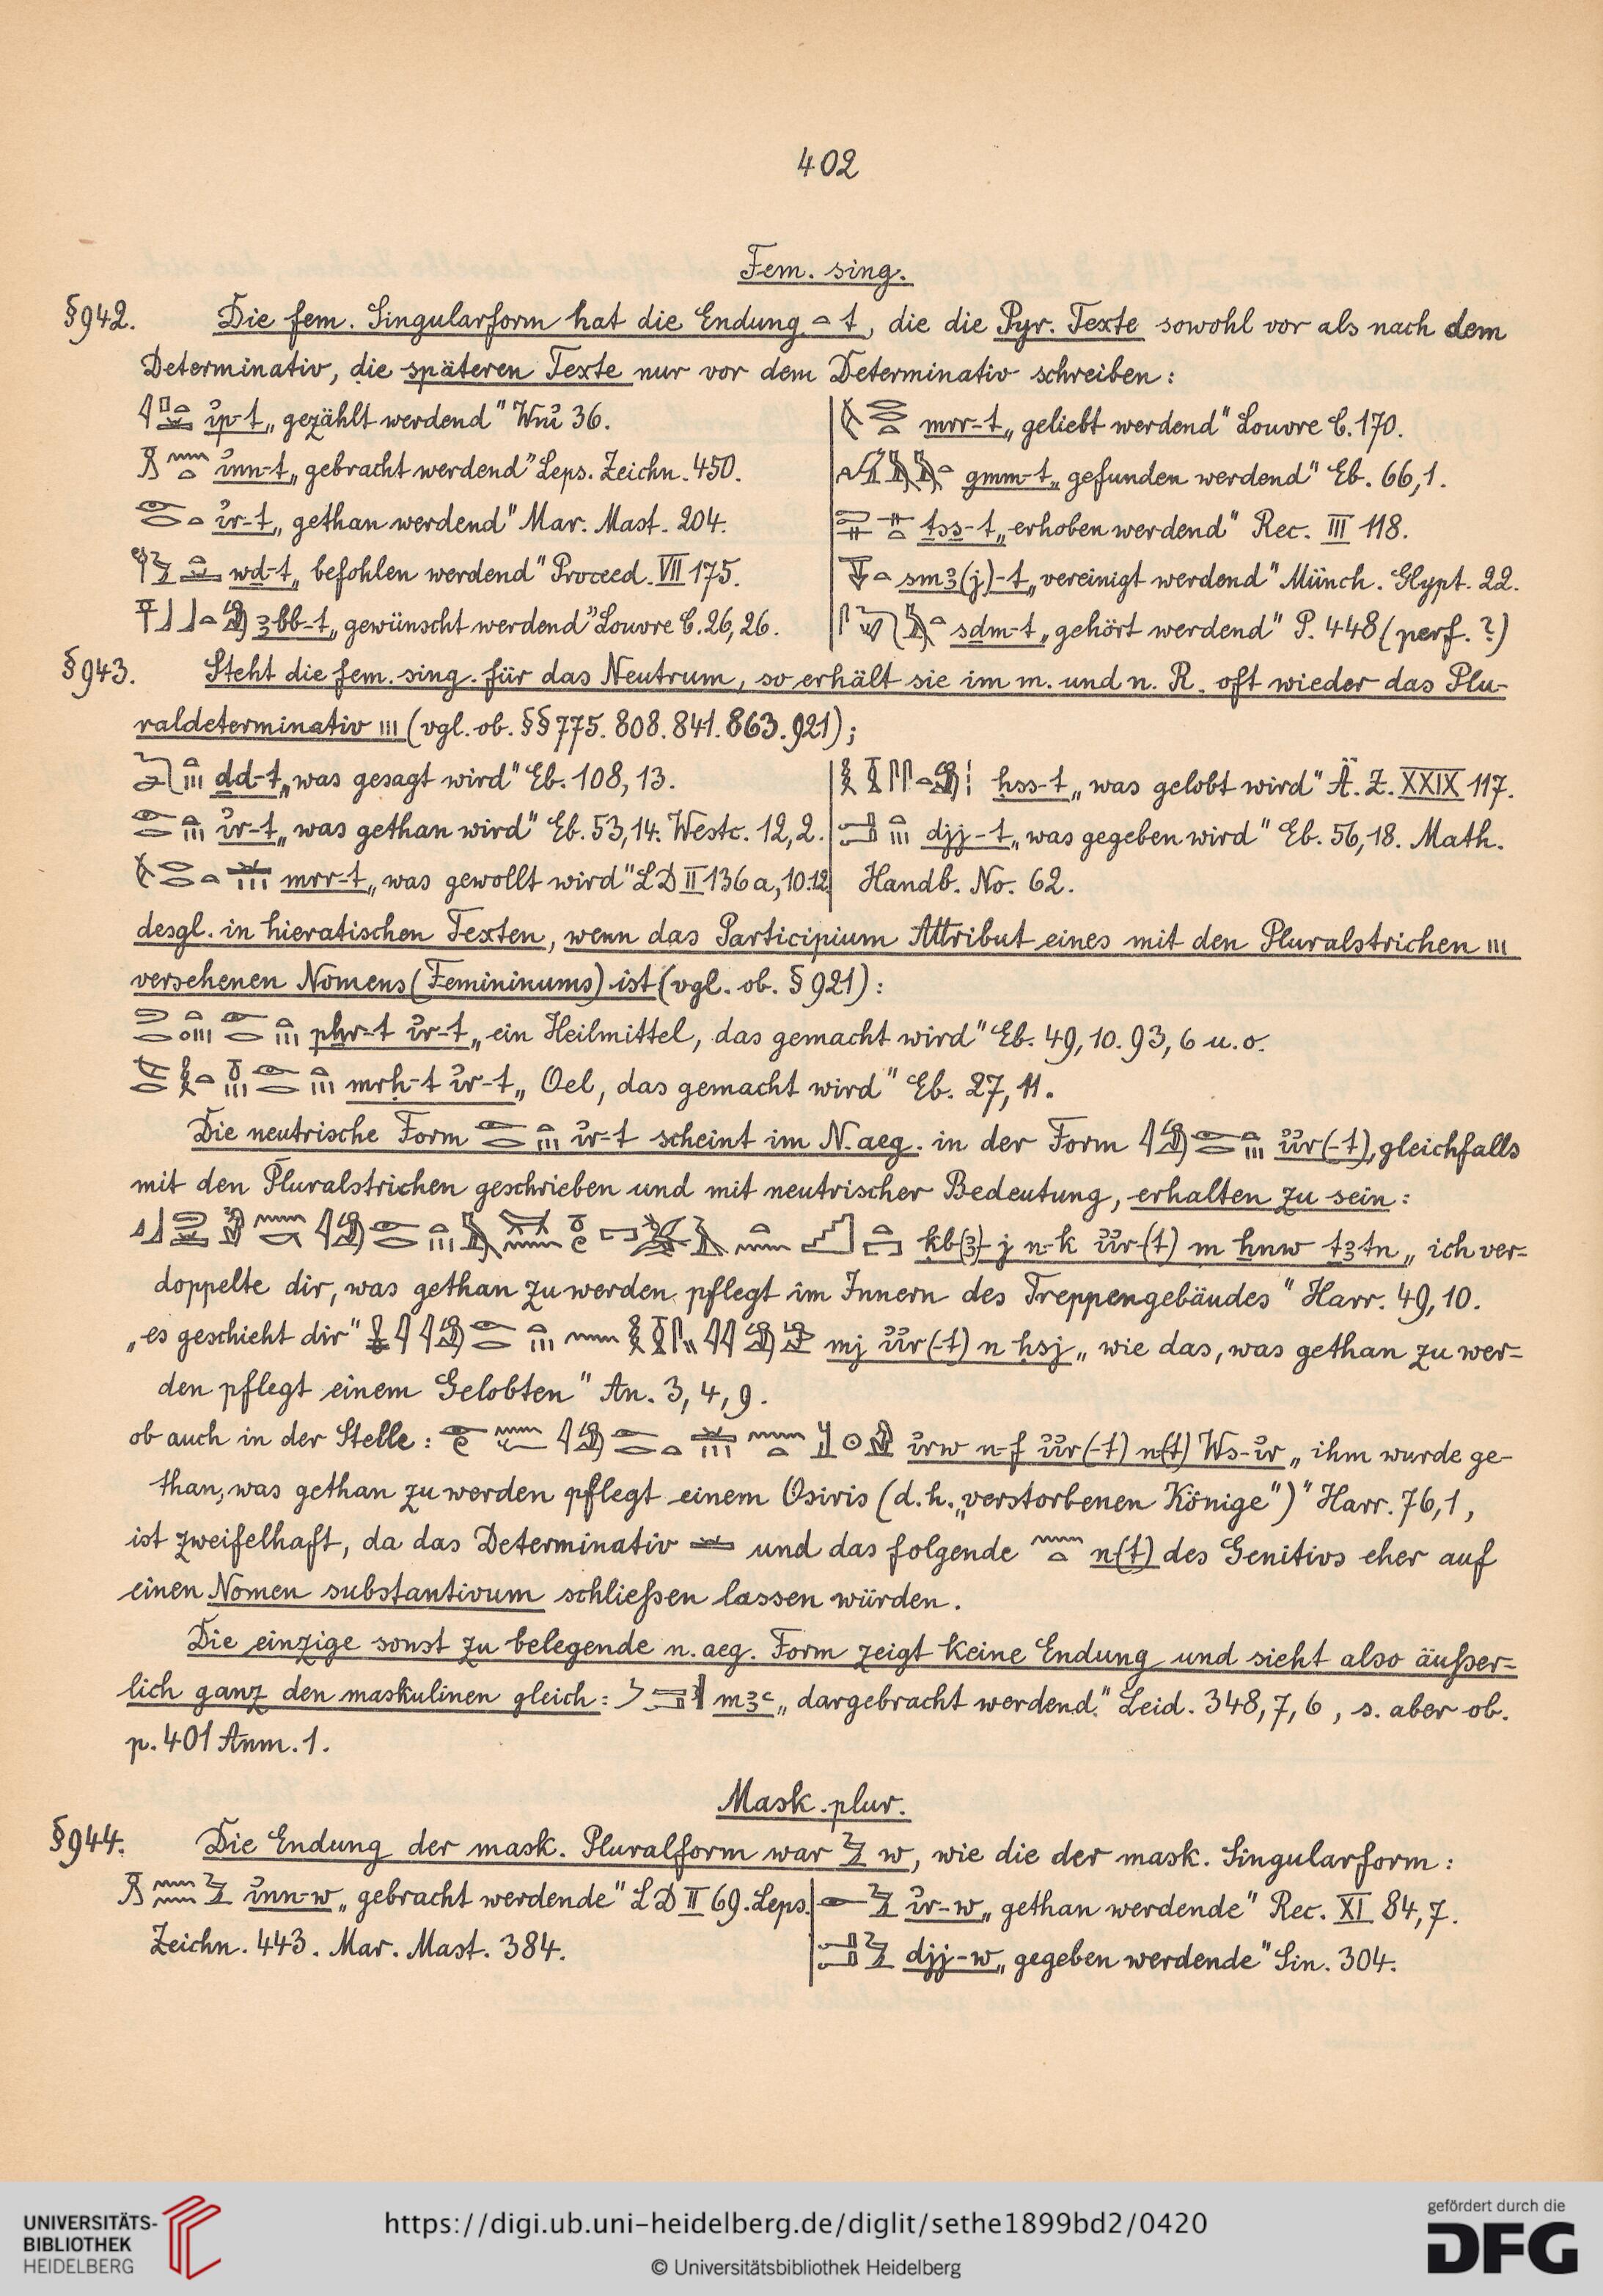 402
Fem. sing.
§942. Die fem. Singularform hat die Endung 𓏏 t, die die Pyr. Texte sowohl vor als nach dem
Determinativ, die späteren Texte nur vor dem Determinativ schreiben:
ı͗p-t „gezählt werdend" Wnı͗ 36.
ı͗nn-t „gebracht werdend" Leps. Zeichn. 450.
ı͗r-t „gethan werdend" Mar. Mast. 204.
wd-t „befohlen werdend" Proceed. VII 175.
ꜣbb-t „gewünscht werdend" Louvre C. 26, 26.
mrr-t „geliebt werdend" Louvre C. 170.
gmm-t „gefunden werdend" Eb. 66,1.
tss-t „erhoben werdend" Rec. III 118.
smꜣ(j)-t „vereinigt werdend" Münch. Glypt. 22.
sdm-t „gehört werdend" P. 448 (perf. ?)
§943. Steht die fem. sing. für das Neutrum, so erhält sie im m. und n. R. oft wieder das Plu-
raldeterminativ ııı (vgl. ob. §§ 775. 808. 841. 863. 921);
dd-t „was gesagt wird" Eb. 108, 13.
ı͗r-t „was gethan wird" Eb. 53,14. Westc. 12,2.
mrr-t „was gewollt wird" LD II 136 a, 10.12
ḥss-t „was gelobt wird" Ä. Z. XXIX 117.
djj-t „was gegeben wird" Eb. 56,18. Math.
Handb. No. 62.
desgl. in hieratischen Texten, wenn das Participium Attribut eines mit den Pluralstrichen ııı
versehenen Nomens (Femininums) ist (vgl. ob. § 921):
pḫr-t ı͗r-t „ein Heilmittel, das gemacht wird" Eb. 49, 10. 93, 6 u. o.
mrḥ-t ı͗r-t „Oel, das gemacht wird" Eb. 27, 11.
Die neutrische Form ı͗r-t scheint im N. aeg. in der Form ı͗ı͗r(-t), gleichfalls
mit den Pluralstrichen geschrieben und mit neutrischer Bedeutung, erhalten zu sein:
kb(ꜣ)-j n-k ı͗ı͗r-(t) m ẖnw tꜣ tn „ich ver-
doppelte dir, was gethan zu werden pflegt im Innern des Treppengebäudes" Harr. 49, 10.
„es geschieht dir" mj ı͗ı͗r(-t) n ḥsj „wie das, was gethan zu wer-
den pflegt einem Gelobten" An. 3, 4, 9.
ob auch in der Stelle: ı͗rw n-f ı͗ı͗r(-t) n(t) Ws-ı͗r „ihm wurde ge-
than, was gethan zu werden pflegt einem Osiris (d. h. „verstorbenen Könige")" Harr. 76,1,
ist zweifelhaft, da das Determinativ und das folgende n(t) des Genitivs eher auf
einen Nomen substantivum schließen lassen würden.
Die einzige sonst zu belegende n. aeg. Form zeigt keine Endung und sieht also äußer-
lich ganz den maskulinen gleich: mꜣꜥ „dargebracht werdend." Leid. 348, 7, 6, s. aber ob.
p. 401 Anm. 1.
Mask. plur.
§944. Die Endung der mask. Pluralform war w, wie die der mask. Singularform:
ı͗nn-w „gebracht werdende" LD II 69. Leps.
Zeichn. 443. Mar. Mast. 384.
ı͗r-w „gethan werdende" Rec. XI 84, 7.
djj-w „gegeben werdende" Sin. 304.
UNIVERSITÄTS-
BIBLIOTHEK
HEIDELBERG
https://digi.ub.uni-heidelberg.de/diglit/sethe1899bd2/0420
© Universitätsbibliothek Heidelberg
gefördert durch die
DFG